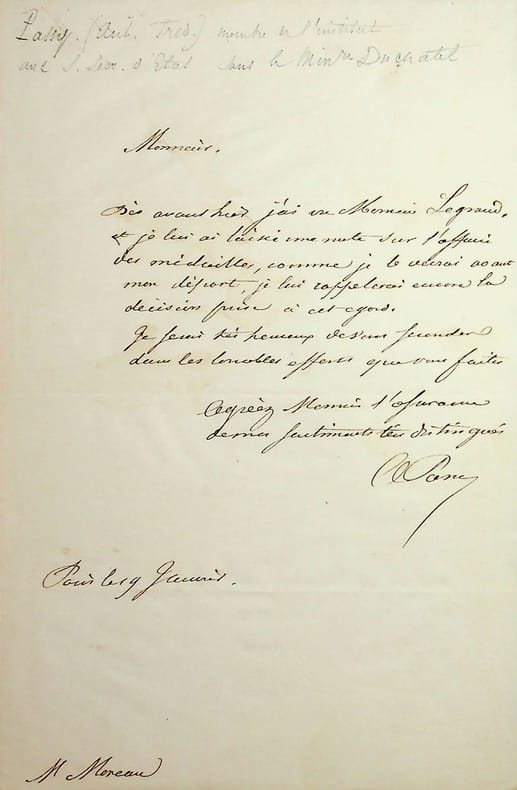 Passy. (Ant. Fred.) membre de l'institut
anc S. Secr. d'Etat sous le Min.re Duchatel
Monsieur.
Dès avant hier j'ai vu Monsieur Legrand,
et je lui ai laissé une note sur l'affaire
des médailles, comme je le verai avant
mon départ, je lui rappelerai encore la
decision prise à cet egard.
Je serai très heureux de vous seconder
dans les louables efforts que vous faites
Agréez Monsieur l'assurance
de mes sentiments très distingués
A Passy
Paris les 9 Janvier.
Mr Moreau